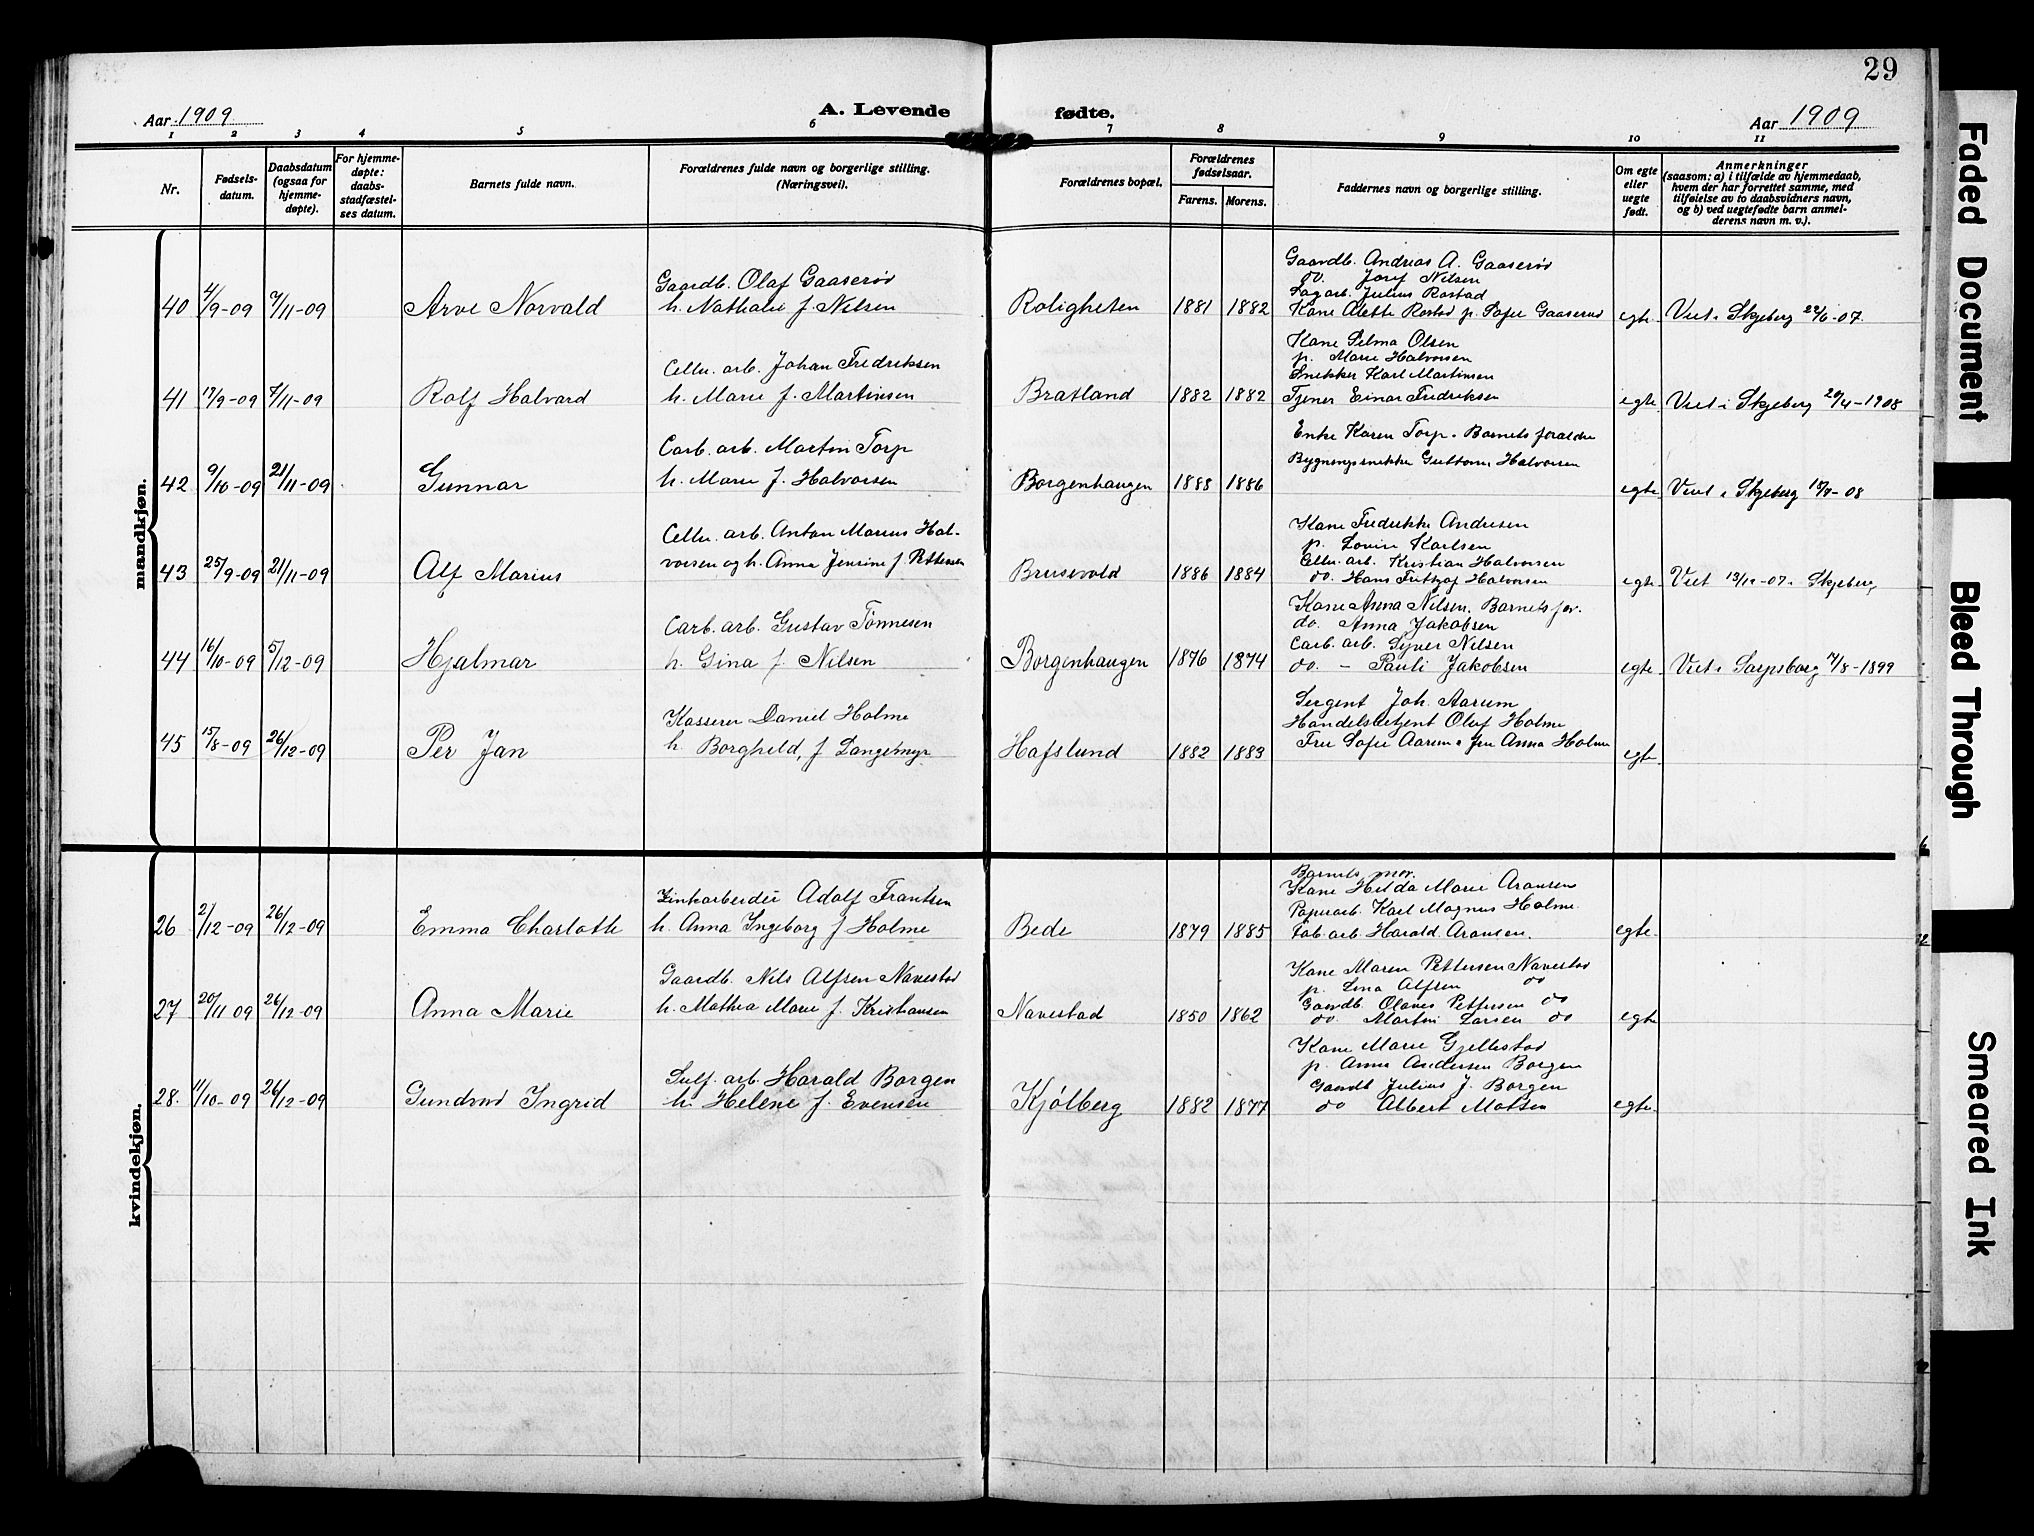 29
Aar 1909
A. Levende
fødte.
Aar 1909
1 2 3 4 5 6 7 8 9 10 11
Nr.
Fødsels-
datum.
Daabsdatum
(ogsaa for
hjemme-
døpte).
For hjemme-
døpte:
daabs-
stadfæstel-
ses datum.
Barnets fulde navn.
Forældrenes fulde navn og borgerlige stilling.
(Næringsvei).
Forældrenes bopæl.
Forældrenes
fødselsaar.
Farens. Morens.
Faddernes navn og borgerlige stilling.
Om egte
eller
uegte
født.
Anmerkninger
(saasom: a) i tilfælde av hjemmedaab,
hvem der har forrettet samme, med
tilføielse av to daabsvidners navn,
og b) ved uegtefødte barn anmel-
derens navn m. v.).
mandkjøn.
40 4/9-09 7/11-09 Arve Norvald
Gaardb. Olaf Gaaserød
h. Nathalie f. Nilsen
Roligheten 1881 1882
Gaardb. Andreas A. Gaaserød
do. Josef Nilsen
Dagarb. Julius Rostad
Kone Alette Rostad p. Sofie Gaaserud
egte Viet i Skjeberg 22/6-07.
41 17/9-09 7/11-09 Rolf Halvard
Cellu. arb. Johan Fredriksen
h. Marie f. Martinsen
Bratland 1882 1882
Kone Selma Olsen
p. Marie Halvorsen
Snekker Karl Martinsen
Tjener Einar Fredriksen
egte Viet i Skjeberg 20/4-1908
42 9/10-09 21/11-09 Gunnar
Carb. arb. Martin Torp
h. Marie f. Halvorsen
Borgenhaugen 1888 1886
Enke Karen Torp. Barnets foraldre
Bygningssnekker Guttorm Halvorsen
egte Viet i Skjeberg -08
43 25/9-09 21/11-09 Alf Marius
Cellu. arb. Anton Marius Hal-
vorsen og h. Anna Jensine f. Pettersen
Brusevold 1886 1884
Kone Fredrikke Andresen
p. Lovise Karlsen
Cellu. arb. Kristian Halvorsen
do. Hans Frithjof Halvorsen
egte Viet -07 i Skjeberg
44 16/10-09 5/12-09 Hjalmar
Carb. arb. Gustav Tönnesen
h. Gina f. Nilsen
Borgenhaugen 1876 1874
Kone Anna Nilsen. Barnets for.
do. Anna Jakobsen
Carb. arb. Syver Nilsen
do. - Pauli Jakobsen
egte Viet i Sarpsborg /8-1899
45 15/8-09 26/12-09 Per Jan
Kasserer Daniel Holme
h. Borghild, f. Langemyr
Hafslund 1882 1883
Sergent Joh. Aarum
Handelsbetjent Oluf Holme
Fru Sofie Aarum & fru Anna Holme
egte.
kvindekjøn.
26 2/12-09 26/12-09 Emma Charlotte
Zinkarbeider Adolf Frantsen
h. Anna Ingeborg f Holme
Bede 1879 1885
Barnets mor.
Kone Hilda Marie Aronsen
Papirarb. Karl Magnus Holme
Fab. arb. Harald Aronsen.
egte.
27 20/11 09 26/12-09 Anna Marie
Gaardb. Nils Alfsen Navestad
h. Mathea Marie f. Kristiansen
Navestad 1850 1862
Kone Maren Pettersen Navestad
p. Lina Alfsen do
Gaardb. Olaves Pettersen do
do. Martin Larsen do
egte
28. 11/10-09 26/12-09 Gundvor Ingrid
Sulf. arb. Harald Borgen
h. Helene f. Evensen
Kjølberg 1882 1877
Kone Marie Gjellestad
p. Anna Andersen Borgen
Gaardb. Julius J. Borgen
do Albert Matsen
egte.
Faded Document
Bleed Through
Smeared Ink